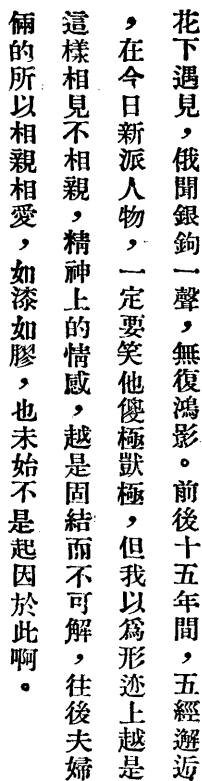 花下遇見，俄聞銀鉤一聲，無復鴻影。前後十五年間，五經邂近
，在今日新派人物，一定要笑他儍極獃極，但我以爲形迹上越是
這樣相見不相親，精神上的情感，越是固結而不可解，往後夫婦
倆的所以相親相愛，如漆如膠，也未始不是起因於此啊。